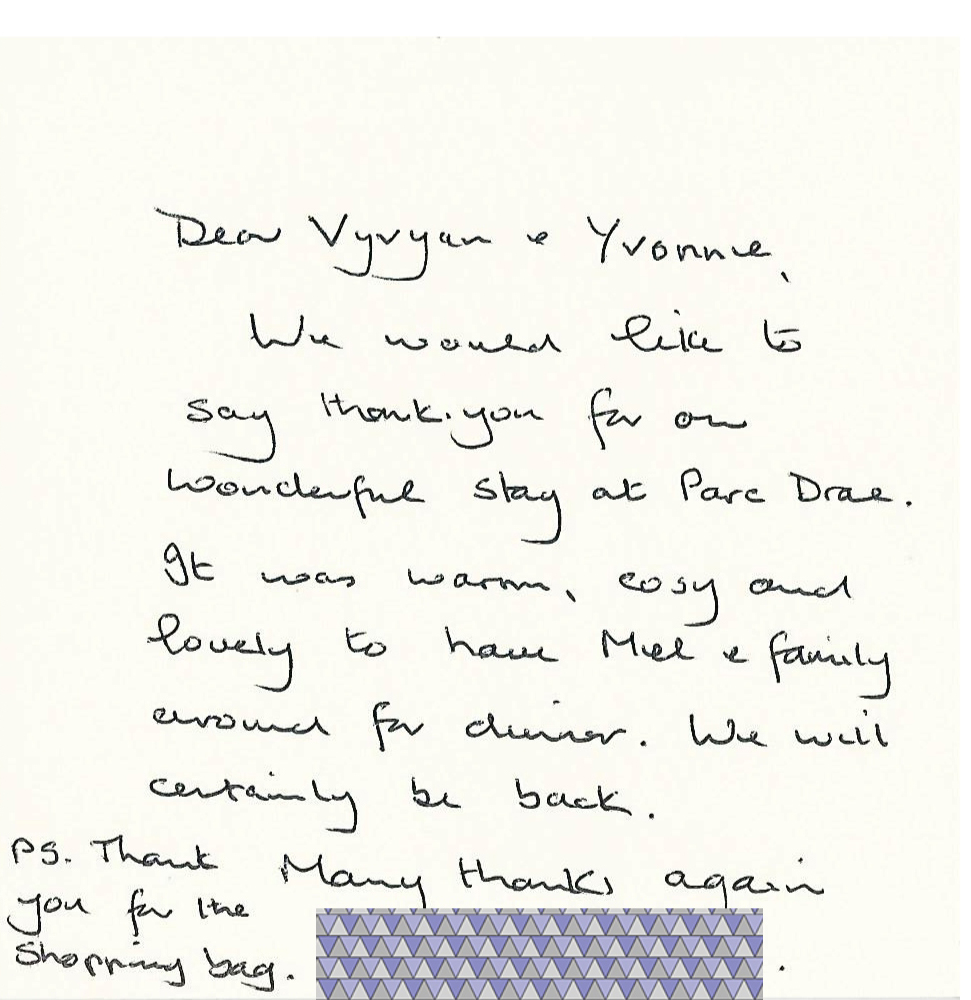 Dear Vyvyan & Yvonne,
We would like to
say thank.you for our
wonderful stay at Parc Drae.
It was warm, cosy and
lovely to have Mel & family
around for dinner. We will
certainly be back.
Many thanks again
PS. Thank
you for the
shopping bag.